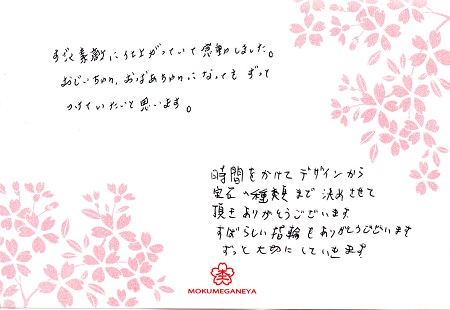 すごく素敵に仕上がっていて感動しました。
おじいちゃん、おばあちゃんになっても ずって
つけていたいと思います。
時間をかけて デザインから
宝石の種類まで 決めさせて
頂き ありがとうございます
すばらしい 指輪を ありがとうございます
ずっと 大切に していきます
MOKUMEGANEYA